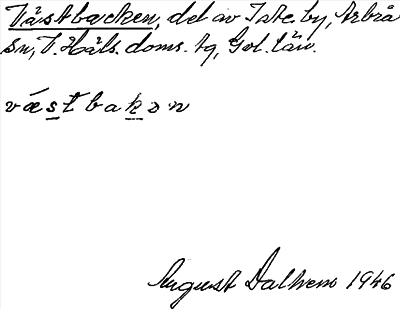 Västbacken, del av Iste by, Arbrå
sn, V. Häls. doms. tg, Gvl. län.
västbakən
August Dalhem 1946